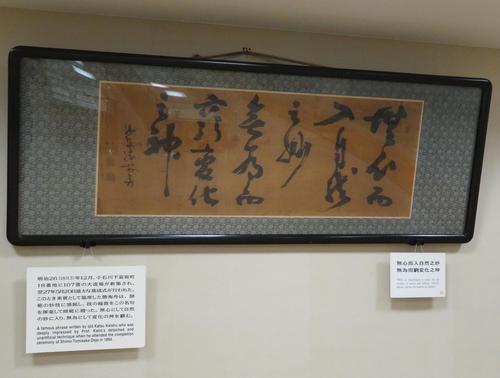 無心而
入自然
之妙
無為而
窮變化
之神
明治26(1893)年12月、小石川下富坂町
18番地に107畳の大道場が新築され、
翌27年5月20日盛大な落成式が行われた。
このとき来賓として臨席した勝海舟は、師
範の妙技に感銘し、技の極意をこの名句
を揮毫して師範に贈った。無心にして自然
の妙に入り、無為にして変化の神を窮む。
A famous phrase written by old Katsu Kaishu who was
deeply impressed by Prof. Kano's detached and
unartificial technique when he attended the completion
ceremony of Shimo-Tomisaka Dojo in 1894.
無心而入自然之妙
無為而窮変化之神